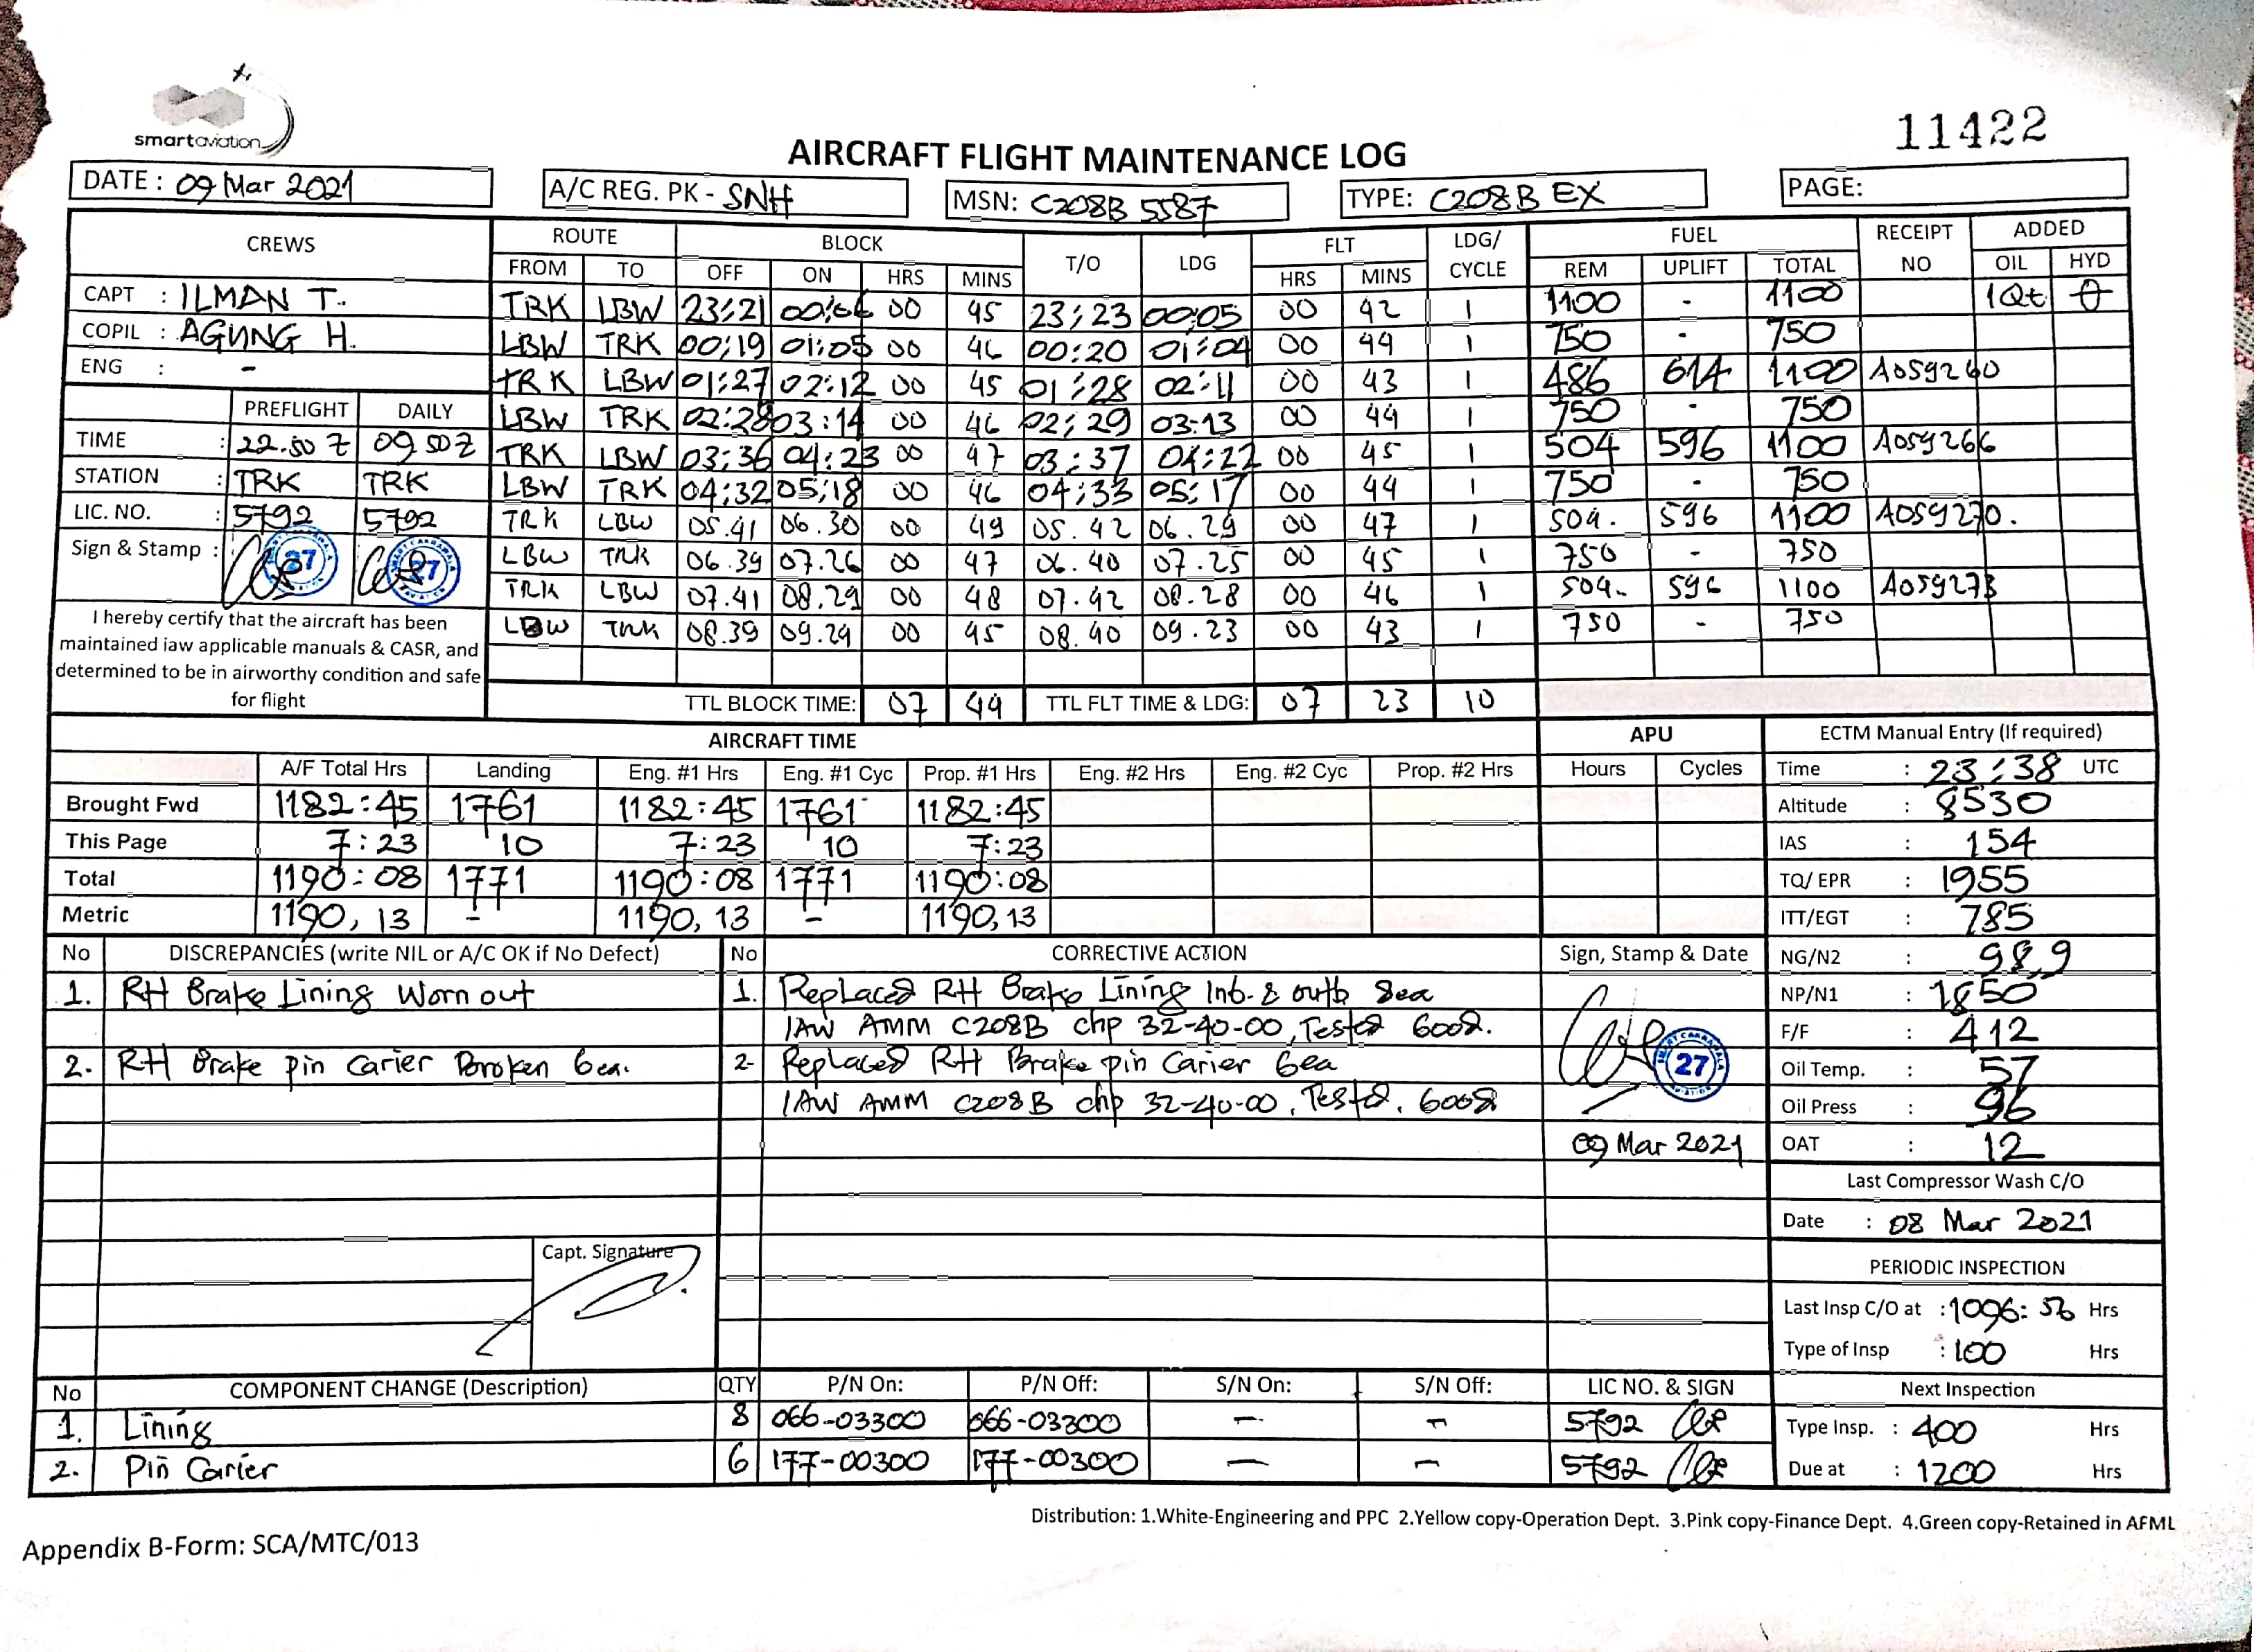 smartaviation
11422
AIRCRAFT FLIGHT MAINTENANCE LOG
DATE : 09 Mar 2021 A/C REG. PK - SNH MSN: C208B 5587 TYPE: C208B EX PAGE:
CREWS ROUTE BLOCK T/O LDG FLT LDG/ CYCLE FUEL RECEIPT NO ADDED
FROM TO OFF ON HRS MINS HRS MINS REM UPLIFT TOTAL OIL HYD
CAPT : ILMAN T.
COPIL : AGUNG H.
ENG : -
PREFLIGHT DAILY
TIME : 22.50 Z 09 50 Z
STATION : TRK TRK
LIC. NO. : 5792 5792
Sign & Stamp : 27 27
I hereby certify that the aircraft has been
maintained iaw applicable manuals & CASR, and
determined to be in airworthy condition and safe
for flight
TRK LBW 23:21 00:06 00 45 23:23 00:05 00 42 1 1100 - 1100 1Qt 0
LBW TRK 00:19 01:05 00 46 00:20 01:04 00 44 1 750 - 750
TRK LBW 01:27 02:12 00 45 01:28 02:11 00 43 1 486 614 1100 A059260
LBW TRK 02:28 03:14 00 46 02:29 03:13 00 44 1 750 - 750
TRK LBW 03:36 04:23 00 47 03:37 04:22 00 45 1 504 596 1100 A059266
LBW TRK 04:32 05:18 00 46 04:33 05:17 00 44 1 750 - 750
TRK LBW 05.41 06.30 00 49 05.42 06.29 00 47 1 504. 596 1100 A059270.
LBW TRK 06.39 07.26 00 47 06.40 07.25 00 45 1 750 - 750
TRK LBW 07.41 08.29 00 48 07.42 08.28 00 46 1 504. 596 1100 A059273
LBW TRK 08.39 09.24 00 45 08.40 09.23 00 43 1 750 - 750
TTL BLOCK TIME: 07 44 TTL FLT TIME & LDG: 07 23 10
AIRCRAFT TIME APU ECTM Manual Entry (If required)
A/F Total Hrs Landing Eng. #1 Hrs Eng. #1 Cyc Prop. #1 Hrs Eng. #2 Hrs Eng. #2 Cyc Prop. #2 Hrs Hours Cycles Time : 23:38 UTC
Brought Fwd 1182:45 1761 1182:45 1761 1182:45 Altitude : 8530
This Page 7:23 10 7:23 10 7:23 IAS : 154
Total 1190:08 1771 1190:08 1771 1190:08 TQ/ EPR : 1955
Metric 1190,13 - 1190,13 - 1190,13 ITT/EGT : 785
No DISCREPANCIES (write NIL or A/C OK if No Defect) No CORRECTIVE ACTION Sign, Stamp & Date NG/N2 : 98,9
1. RH Brake Lining Worn out 1. Replaced RH Brake Lining Inb. & outb 8ea NP/N1 : 1850
IAW AMM C208B chp 32-40-00, Tested Good. F/F : 412
2. RH Brake pin Carier Broken 6ea. 2- Replaced RH Brake pin Carier 6ea 27 Oil Temp. : 57
IAW AMM C208B chp 32-40-00, Tested. Good Oil Press : 96
09 Mar 2021 OAT : 12
Last Compressor Wash C/O
Date : 08 Mar 2021
Capt. Signature
PERIODIC INSPECTION
Last Insp C/O at : 1096:56 Hrs
Type of Insp : 100 Hrs
No COMPONENT CHANGE (Description) QTY P/N On: P/N Off: S/N On: S/N Off: LIC NO. & SIGN Next Inspection
1. Lining 8 066-03300 066-03300 - - 5792 Type Insp. : 400 Hrs
2. Pin Carier 6 177-00300 177-00300 - - 5792 Due at : 1200 Hrs
Distribution: 1.White-Engineering and PPC 2.Yellow copy-Operation Dept. 3.Pink copy-Finance Dept. 4.Green copy-Retained in AFML
Appendix B-Form: SCA/MTC/013